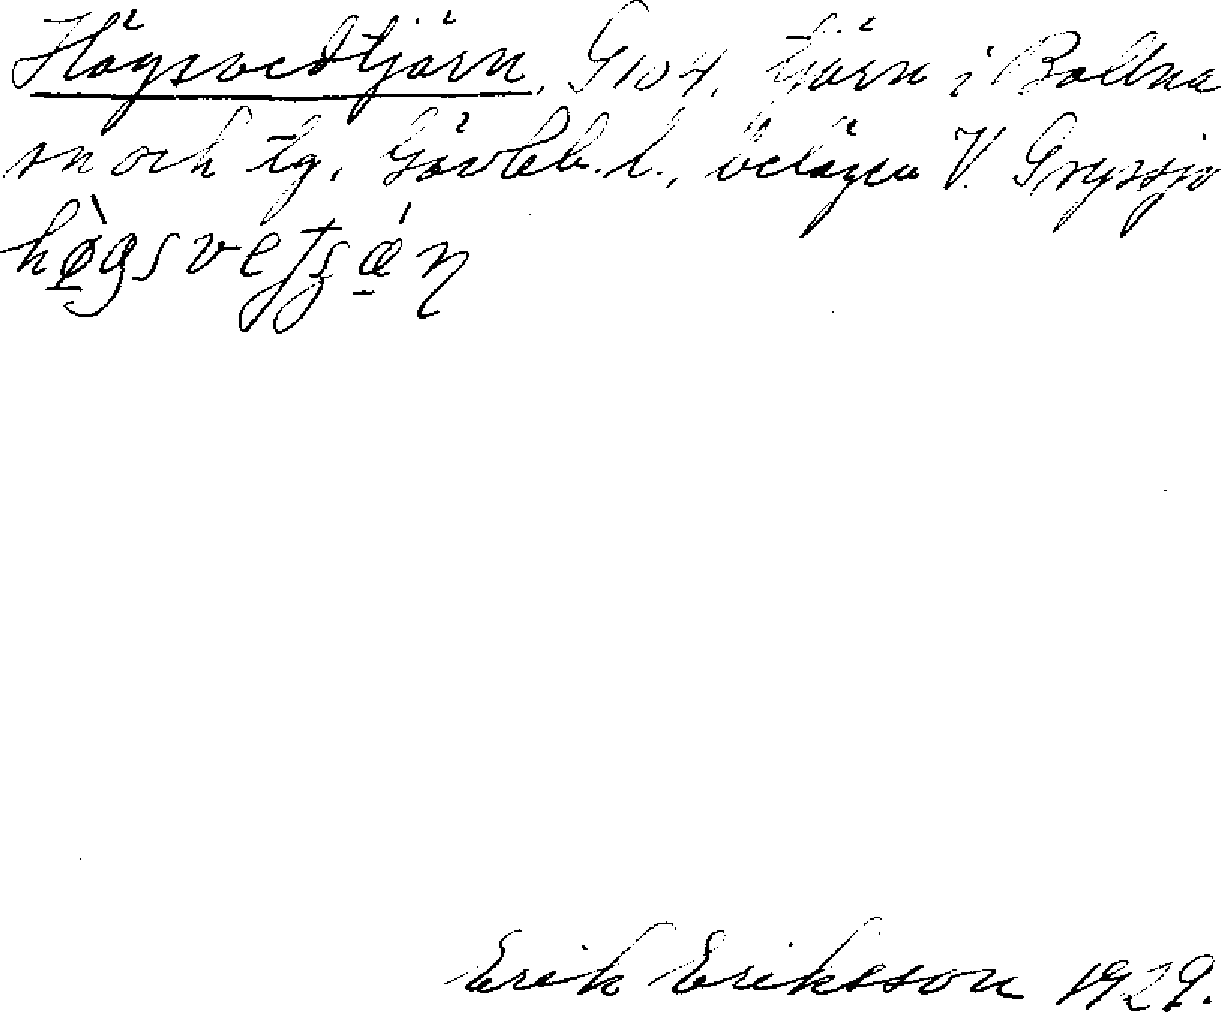 Högsvedtjärn. G 104. tjärn i Bollnä
sn och tg. Gävleb. l., belägen V. Gryssjö
hø̀gsvetʂǽɳ
Erik Eriksson 1929.